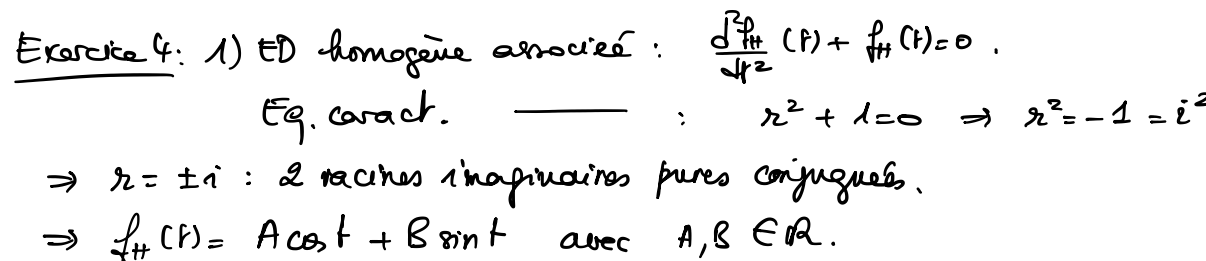 Exercice 4: 1) ED homogène associée : d²f_H/dt² (t) + f_H (t) = 0 .
Eq. caract. ——— : r² + 1 = 0 ⇒ r² = - 1 = i²
⇒ r = ± i : 2 racines imaginaires pures conjuguées.
⇒ f_H (t) = A cos t + B sin t avec A, B ∈ ℝ.